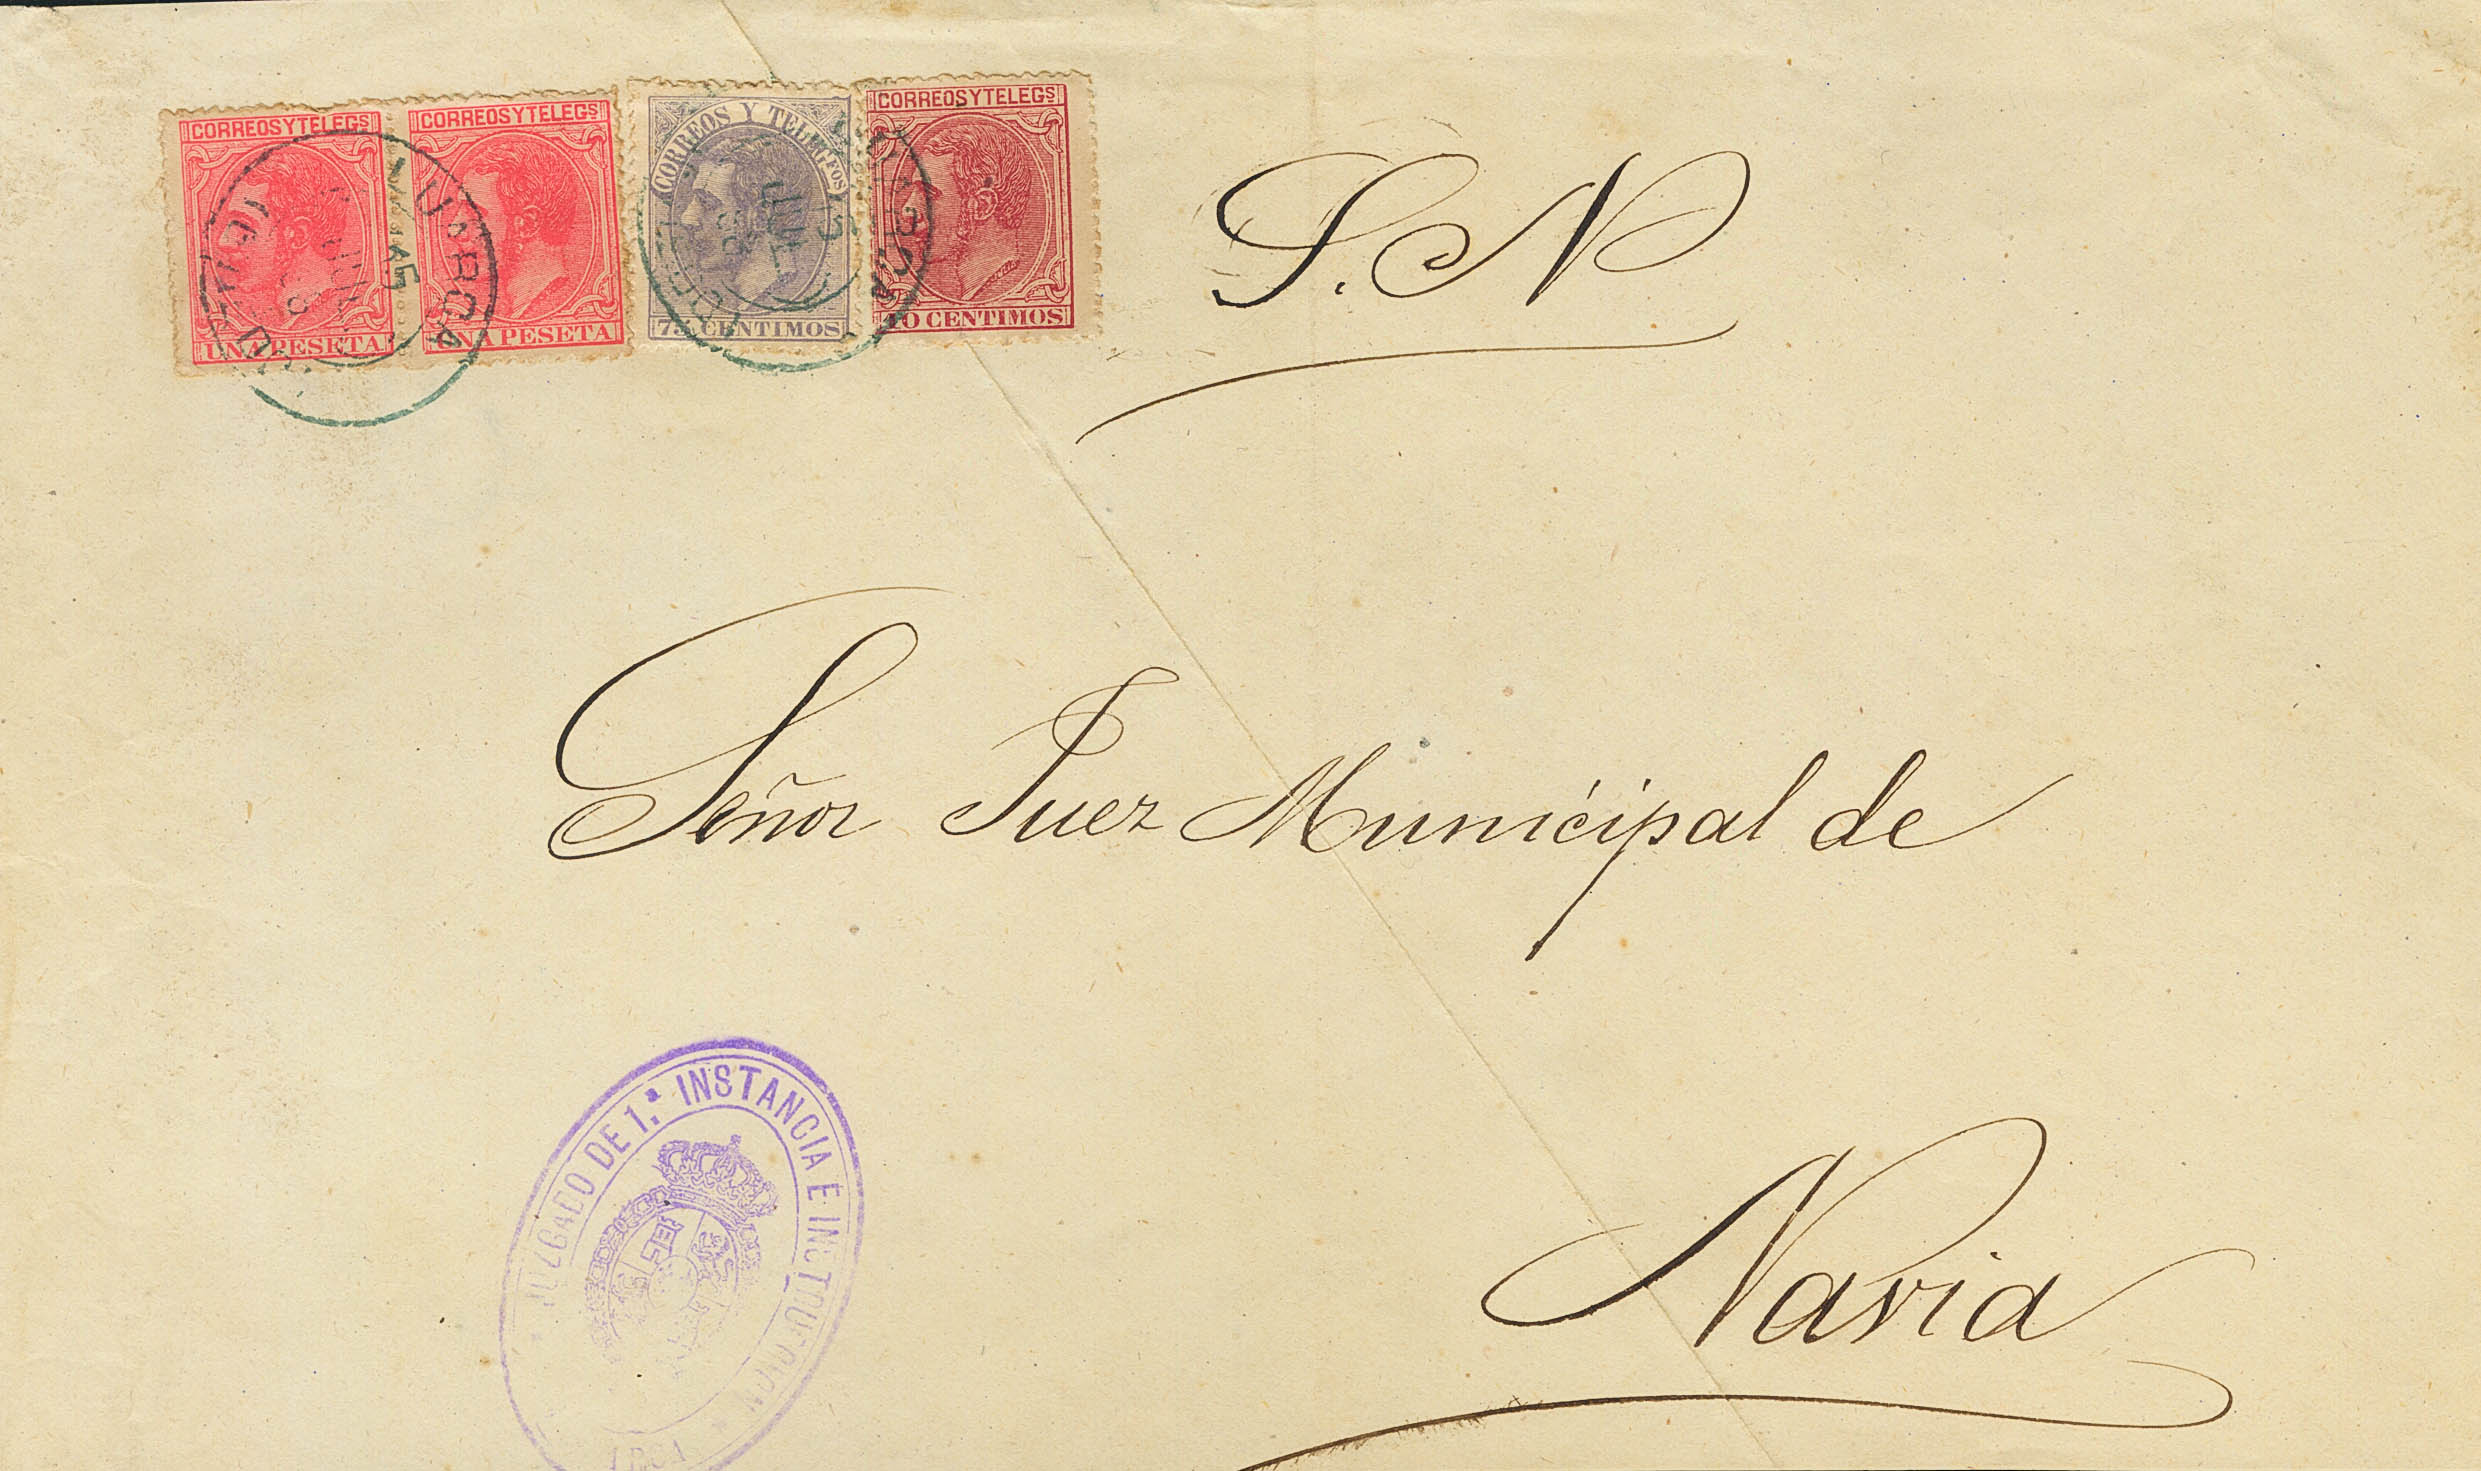 CORREOS Y TELEGS
UNA PESETA
CORREOS Y TELEGS
UNA PESETA
CORREOS Y TELEGFOS
75 CENTIMOS
CORREOS Y TELEGS
10 CENTIMOS
LUARCA
15
JUL
LUARCA
15
JUL
S. N
Señor Juez Municipal de
Navia
JUZGADO DE 1.ª INSTANCIA E INSTRUCCION